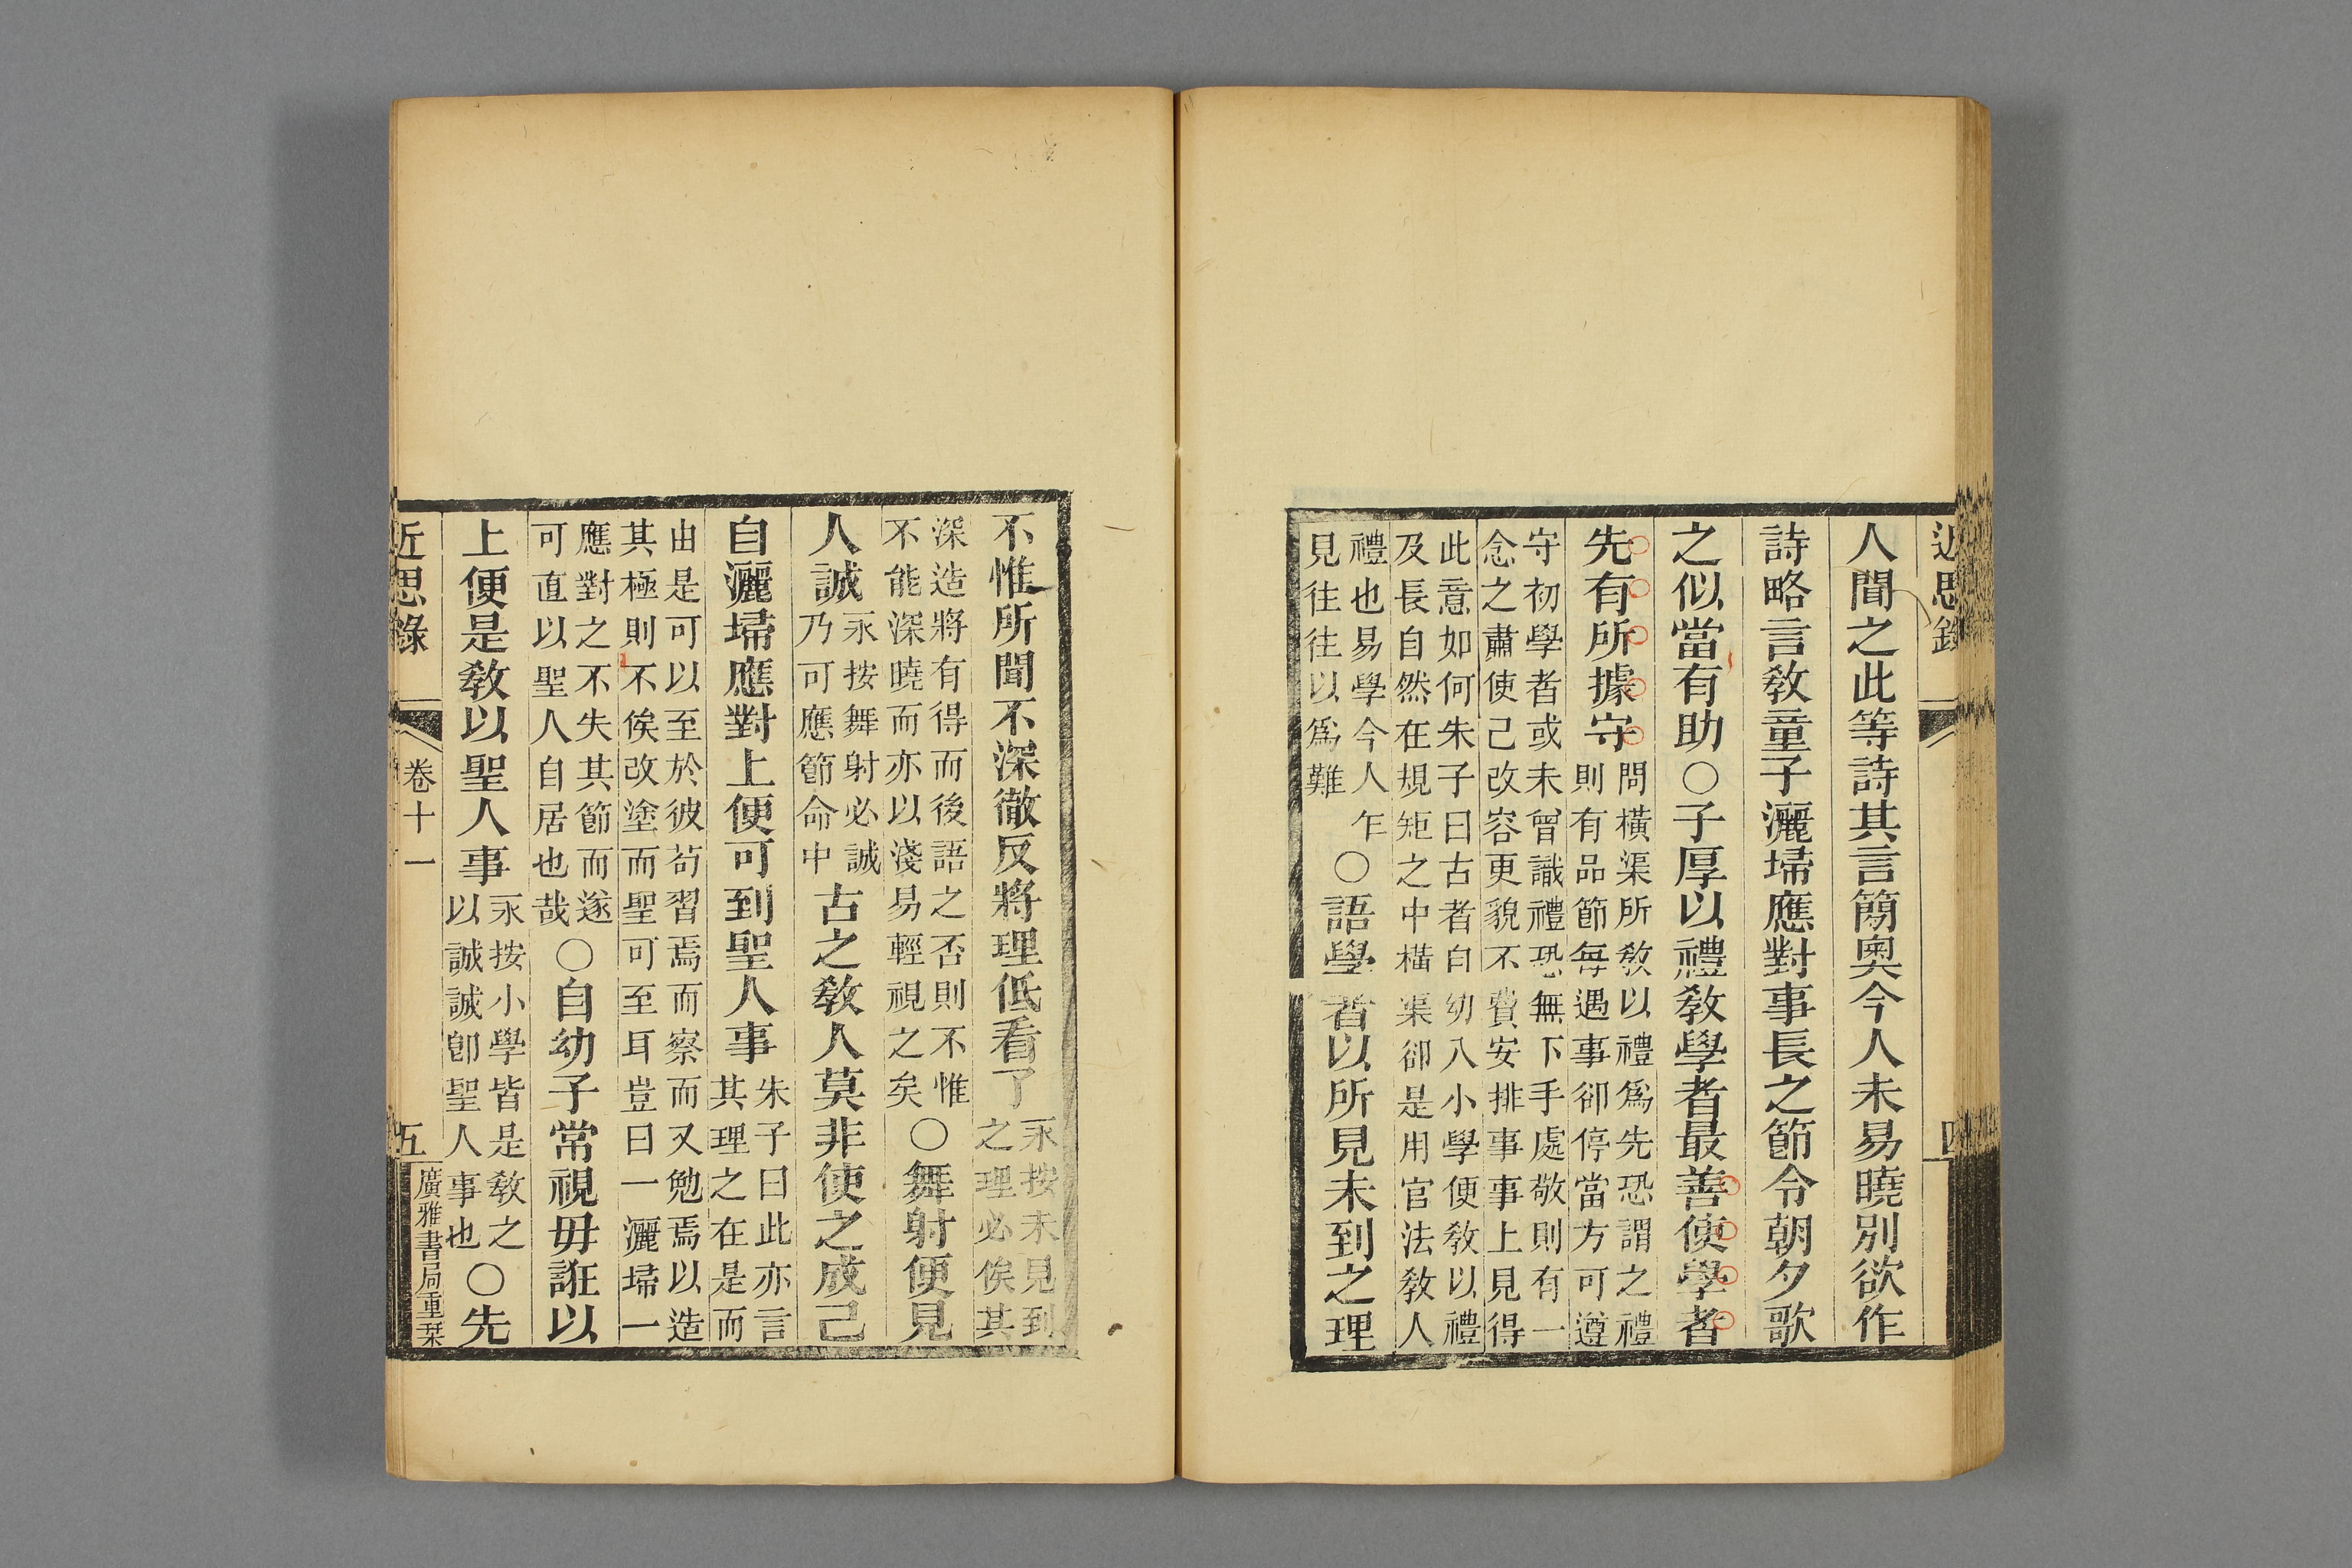 近思錄 四
人聞之此等詩其言簡奧今人未易曉別欲作
詩略言敎童子灑埽應對事長之節令朝夕歌
之似當有助○子厚以禮敎學者最善使學者
先有所據守
問橫渠所敎以禮爲先恐謂之禮
則有品節每遇事卻停當方可遵
守初學者或未曾識禮恐無下手處敬則有一
念之肅使己改容更貌不費安排事事上見得
此意如何朱子曰古者自幼入小學便敎以禮
及長自然在規矩之中橫渠卻是用官法敎人
禮也易學今人乍
見往往以爲難
○語學者以所見未到之理
不惟所聞不深徹反將理低看了
永按未見到
之理必俟其
深造將有得而後語之否則不惟
不能深曉而亦以淺易輕視之矣
○舞射便見
人誠
永按舞射必誠
乃可應節命中
古之敎人莫非使之成己
自灑埽應對上便可到聖人事
朱子曰此亦言
其理之在是而
由是可以至於彼苟習焉而察而又勉焉以造
其極則不俟改塗而聖可至耳豈曰一灑埽一
應對之不失其節而遂
可直以聖人自居也哉
○自幼子常視毋誑以
上便是敎以聖人事
永按小學皆是敎之
以誠誠卽聖人事也
○先
近思錄 卷十一 五 廣雅書局重栞